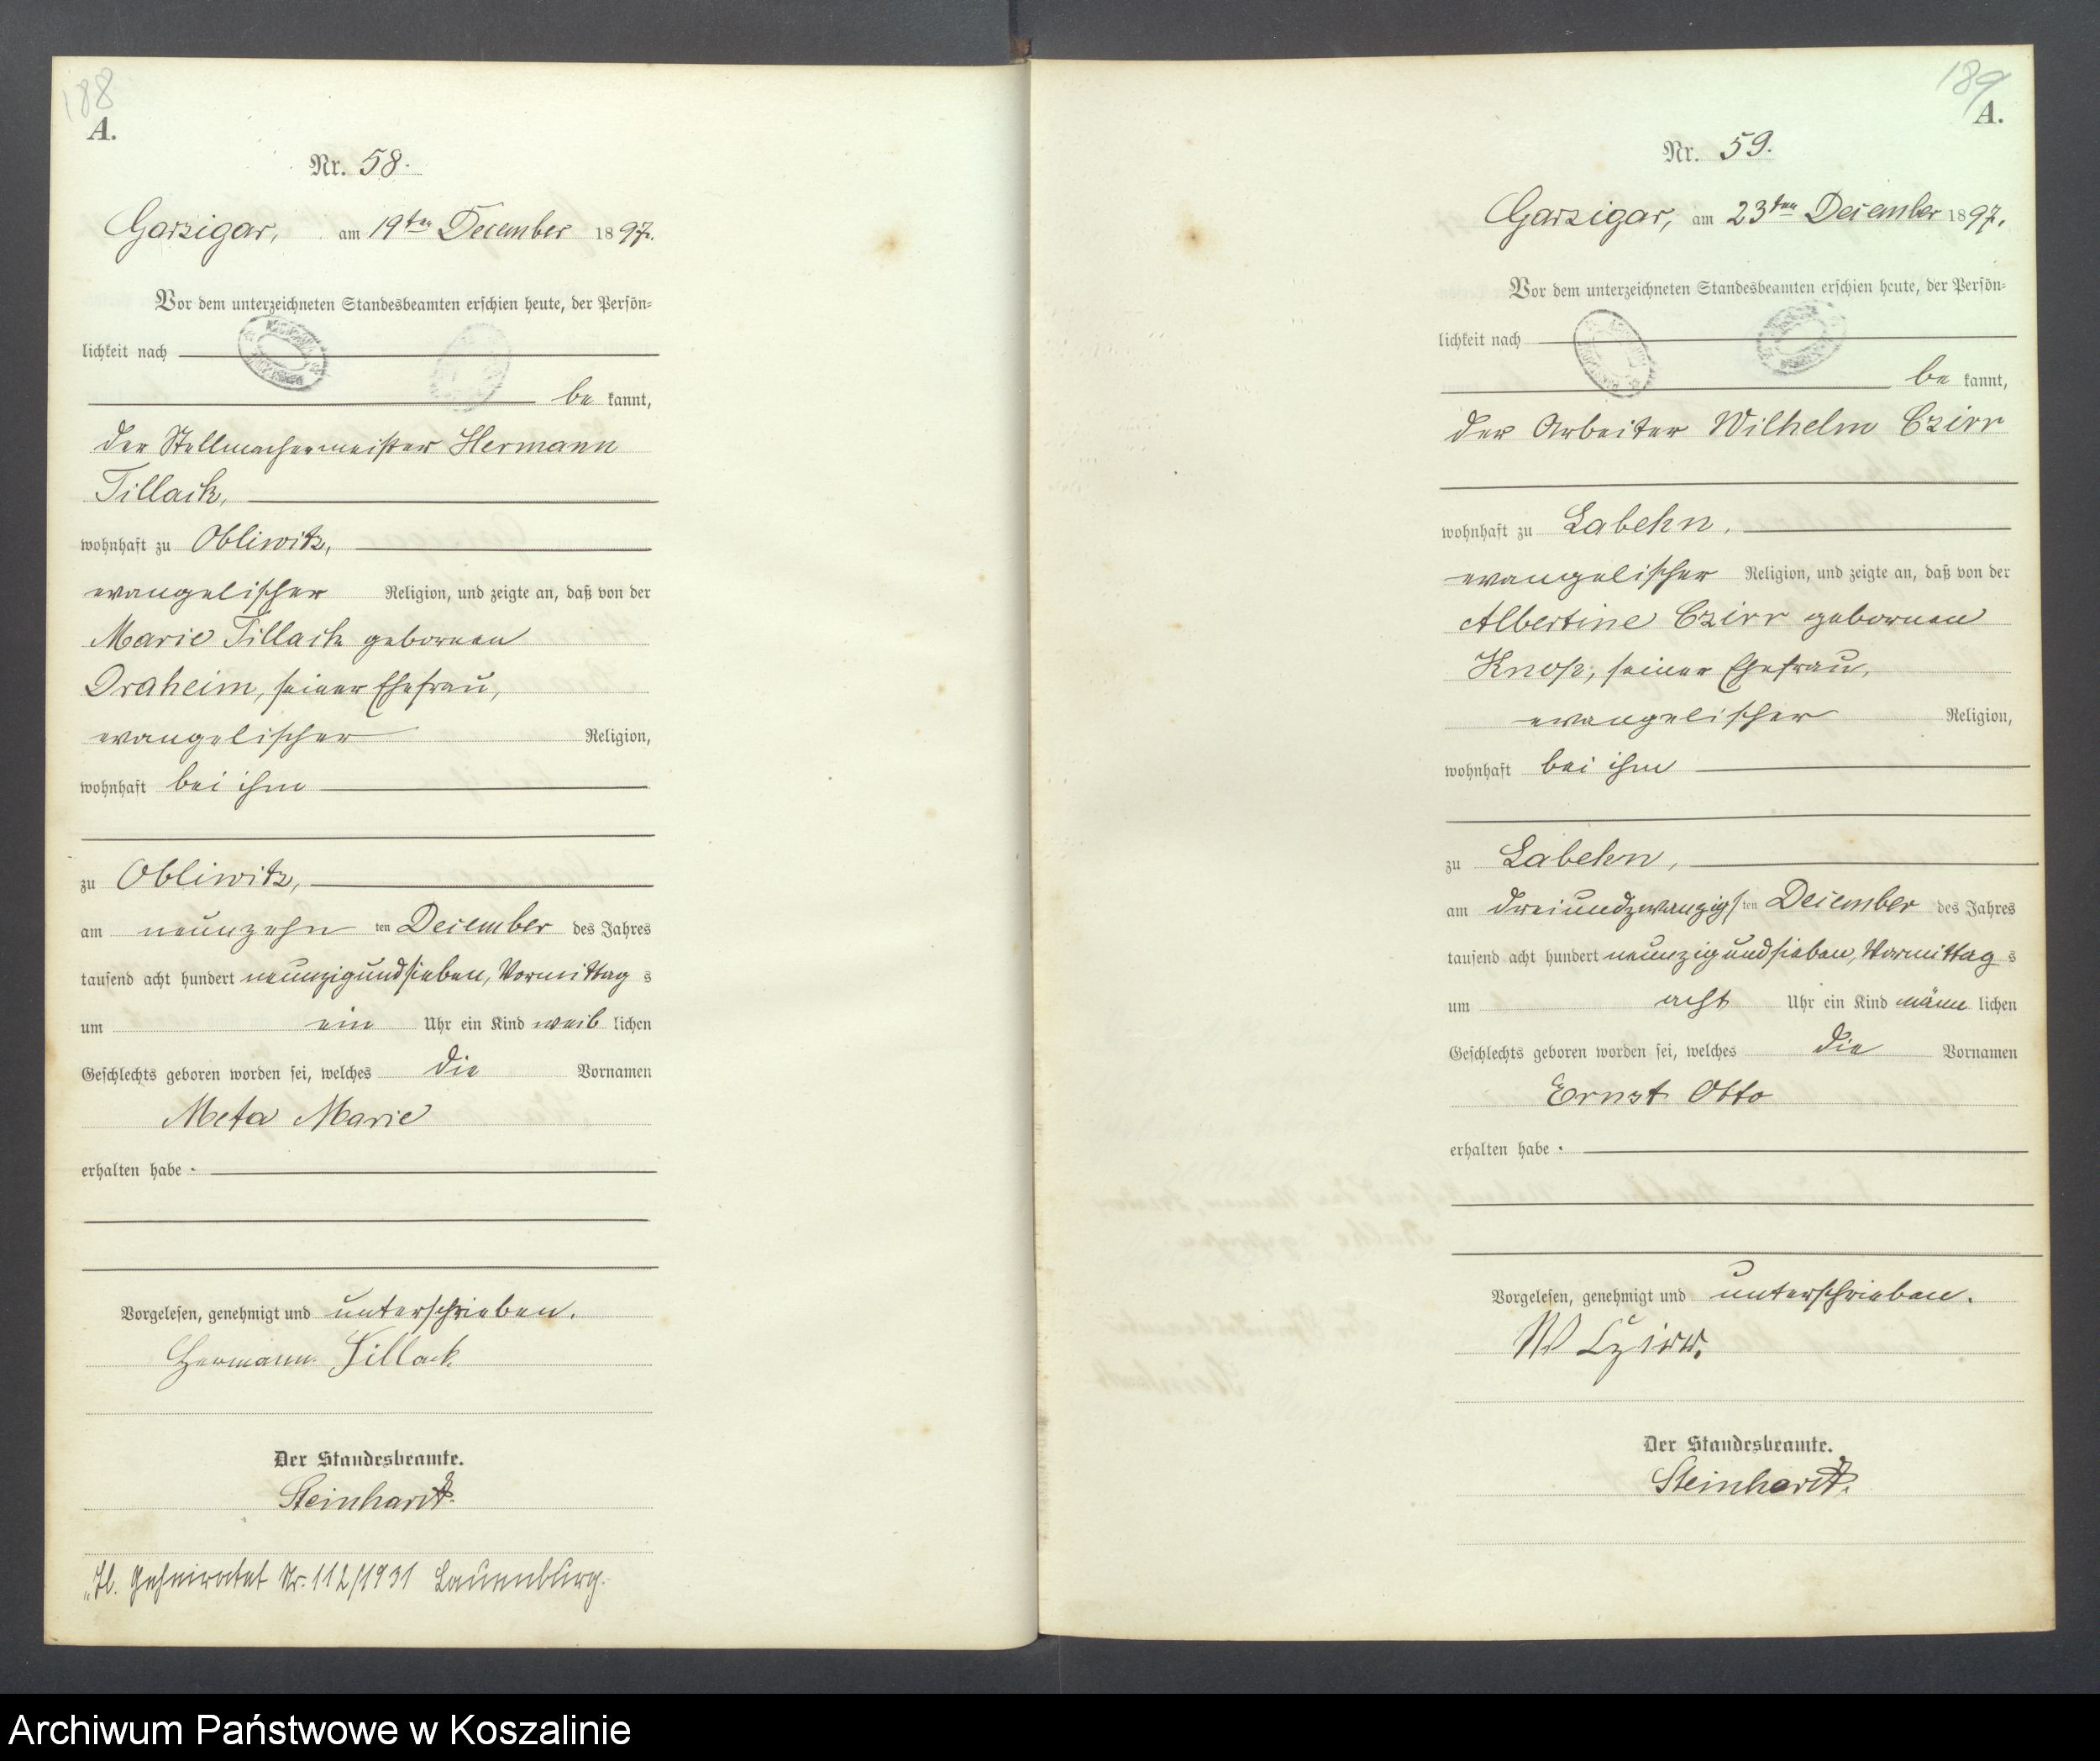 188
A.
Nr. 58.
Garzigar, am 19ten December 1897.
Vor dem unterzeichneten Standesbeamten erschien heute, der Persön=
lichkeit nach
be kannt,
der Stellmachermeister Hermann
Tillack,
wohnhaft zu Obliwitz,
evangelischer Religion, und zeigte an, daß von der
Marie Tillack geborenen
Draheim, seiner Ehefrau,
evangelischer Religion,
wohnhaft bei ihm
zu Obliwitz,
am neunzehn ten December des Jahres
tausend acht hundert neunzig und sieben, Vormittag s
um ein Uhr ein Kind weib lichen
Geschlechts geboren worden sei, welches die Vornamen
Meta Marie
erhalten habe.
Vorgelesen, genehmigt und unterschrieben.
Hermann Tillack
Der Standesbeamte.
Steinhardt.
geheiratet Nr. 112/1931 Lauenburg.
189
A.
Nr. 59.
Garzigar, am 23ten December 1897.
Vor dem unterzeichneten Standesbeamten erschien heute, der Persön=
lichkeit nach
be kannt,
der Arbeiter Wilhelm Czirr
wohnhaft zu Labehn,
evangelischer Religion, und zeigte an, daß von der
Albertine Czirr geborenen
seiner Ehefrau,
evangelischer Religion,
wohnhaft bei ihm
zu Labehn,
am dreiundzwanzigs ten December des Jahres
tausend acht hundert neunzig und sieben, Vormittag s
um acht Uhr ein Kind männ lichen
Geschlechts geboren worden sei, welches die Vornamen
Ernst Otto
erhalten habe.
Vorgelesen, genehmigt und unterschrieben.
W Czirr.
Der Standesbeamte.
Steinhardt.
Archiwum Państwowe w Koszalinie